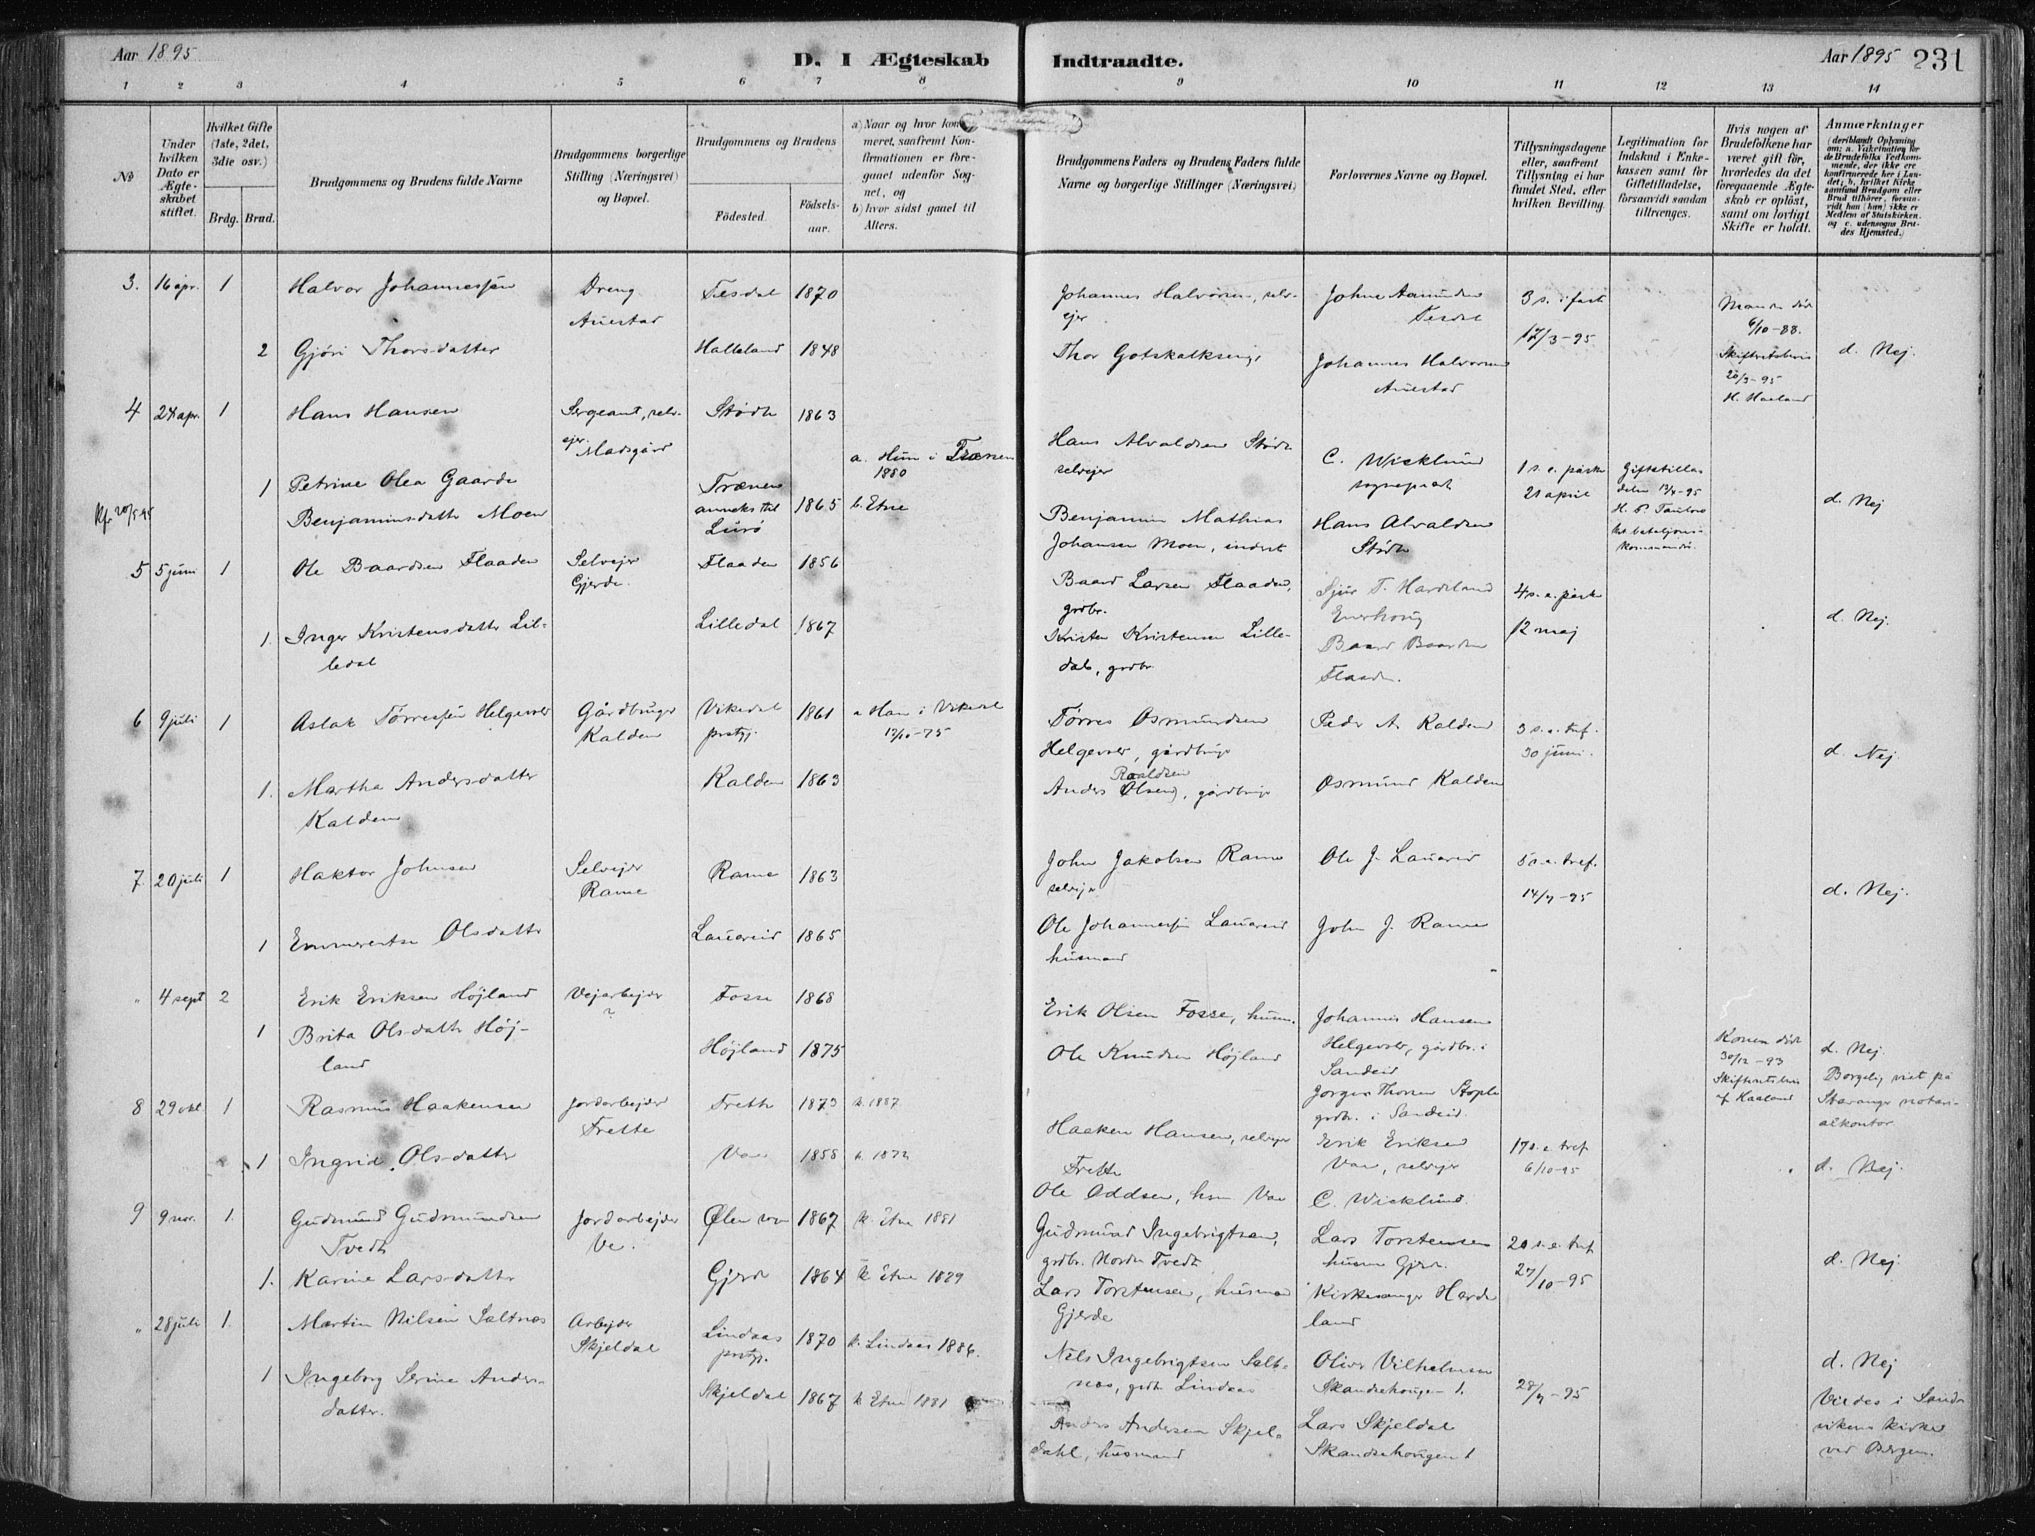 Aar 1895
D. I Ægteskab
Indtraadte.
Aar 1895
231
1 2 3 4 5 6 7 8 9 10 11 12 13 14
№
Under hvilken Dato er Ægteskabet stiftet.
Hvilket Gifte (1ste, 2det, 3die osv.)
Brdg. Brud.
Brudgommens og Brudens fulde Navne
Brudgommens borgerlige Stilling (Næringsvei) og Bopæl.
Brudgommens og Brudens
Fødested.
Fødselsaar.
a) Naar og hvor konfirmeret, saafremt Konfirmationen er foregaaet udenfor Sognet, og
b) hvor sidst gaaet til Alters.
Brudgommens Faders og Brudens Faders fulde Navne og borgerlige Stillinger (Næringsvei)
Forlovernes Navne og Bopæl.
Tillysningsdagene eller, saafremt Tillysning ei har fundet Sted, efter hvilken Bevilling.
Legitimation for Indskud i Enkekassen samt for Giftetilladelse, forsaavidt saadan tiltrænges.
Hvis nogen af Brudefolkene har været gift før, hvorledes da det foregaaende Ægteskab er opløst, samt om lovligt Skifte er holdt.
Anmærkninger
3. 16 apr. 1 Halvor Johannessen Dreng Auestad Tesdal 1870
Johannes Halvorsen, selvejer
Johne Aamunden Tesdal
3 s. i fast 17/3-95
Manden død 6/10-88. Skifteretsbevis 20/3-95 H. Haaland
2 Gjøri Thorsdatter Halleland 1848
Thor Gotskalksen
Johannes Halvorsen Auestad
d. Nej.
4 24 apr. 1 Hans Hansen Sergeant, selvejer. Madsgård Stødle 1863
Hans Alvaldsen Stødle selvejer
C. Wicklund sogneprest
1 s. e. påske 21 april
Giftetilladelse
1 Petrine Olea Gaarde Benjaminsdatter Moen Trænen anneks til Lurø 1865
a. Hun i Trænen 1880
b. Etne
Benjamin Mathias Johansen Moen, inderst
Hans Alvaldsen Stødle
d. Nej
5 5 juni 1 Ole Baardsen Flaaden Selvejer Gjerde. Flaaden 1856
Baard Larsen Flaaden, grdbr.
Sjur T. Hardeland
4 s. e. påske 12 maj
1. Inger Kristensdatter Lilledal Lilledal 1867
Kristen Kristensen Lilledal, grdbr.
Baard Baardsen Flaaden.
d. Nej.
6 9 juli 1 Aslak Tørressen Helgevold Gårdbruger Kalden Vikedal prstgj. 1861
a Han i Vikedal
Tørres Osmundsen Helgevold, gårdbruger
Peder A. Kalden
3 s. e. tref. 30 juni.
1. Martha Andersdatter Kalden Kalden 1863
Anders Roaldsen (Olsen), gårdbruger
Osmund Kalden
d. Nej.
7. 20 juli 1 Haktor Johnsen Selvejer Rame Rame 1863
John Jakobsen Rame selvejer
Ole J. Lauareid
5 s. e. tref. 14/7-95
1 Emmerentse Olsdatter Lauareid 1865
Ole Johannessen Lauareid husmand
John J. Rame
d. Nej.
" 4 sept 2 Erik Eriksen Højland Vejarbejder Fosse 1868
Erik Olsen Fosse, husm.
Johannes Hansen Helgevold, gårdbr. i Sandeid
Konen død 30/12-93
1 Brita Olsdatter Højland Højland 1875
Ole Knudsen Højland
Jørgen Thorsen Stople grdbr. i Sandeid.
d. Nej. Borgelig viet på Stavanger notarialkontor.
8 29 okt 1 Rasmus Haakensen Jordarbejder Frette Frette 1873
k. 1887
Haaken Hansen, selvejer Frette
Erik Eriksen Vae, selvejer
17 s. e tref 6/10-95
1 Ingrid Olsdatter Vae 1858
k. 1872
Ole Oddsen, hm Vae
C. Wicklund.
d. Nej.
9 9 nov. 1. Gudmund Gudmundsen Tvedt Jordarbejder Ve. Ølen 1867
k. Etne 1881
Gudmund Ingebrigtsen, grdbr. Nordre Tvedt
Lars Torstensen husm Gjerde.
20 s. e. tref 27/10-95
1. Karine Larsdatter Gjerde 1864
k. Etne 1879
Lars Torstensen, husmand Gjerde
Kirkesanger Hardeland
d. Nej.
" 28 juli 1. Martin Nilsen Saltnæs Arbejder Skjeldal Lindaas prstgj. 1870
k. Lindaas 1886.
Nils Ingebrigtsen Saltnæs, grdbr Lindaas
Oliver Vilhelmsen Skandsehougen 1.
28/7-95
d. Nej
1 Ingeborg Serine Andersdatter. Skjeldal 1867
k Etne 1881
Anders Andersen Skjeldahl, husmand
Lars Skjeldal Skandsehougen 1
Viedes i Sandvikens Kirke ved Bergen.